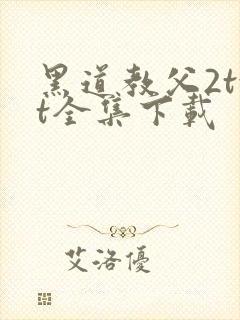 黑道教父2t
t全集下載
艾洛優